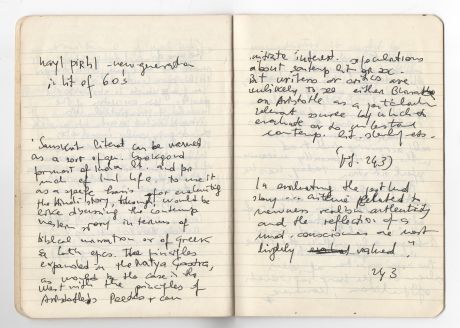 nayi piRhi - new generation
in lit of 60's
Sanskrit literat can be viewed
as a sort of gen. background
for most of India lit. and for
much of Ind life. to use it
as a specific basis for evaluating
the Hindi story, though, would be
like discussing the contemp
western story in terms of
biblical narration or of Greek
& Latin epics. The principles
expanded in the Natya Sastra,
as would be the case in the
West with the principles of
Aristotle's Poetics, can
interest. speculations
about contemp lit or
But writers or critics are
unlikely to see either Bharata
or Aristotle as a particularly
relevant source by which to
evaluate or to understand
contemp. lit.
(pg. 243)
In evaluating the post Ind
story ... criteria related to
newness realism authenticity
and the reflection of a
mod. consciousness are most
highly valued."
243